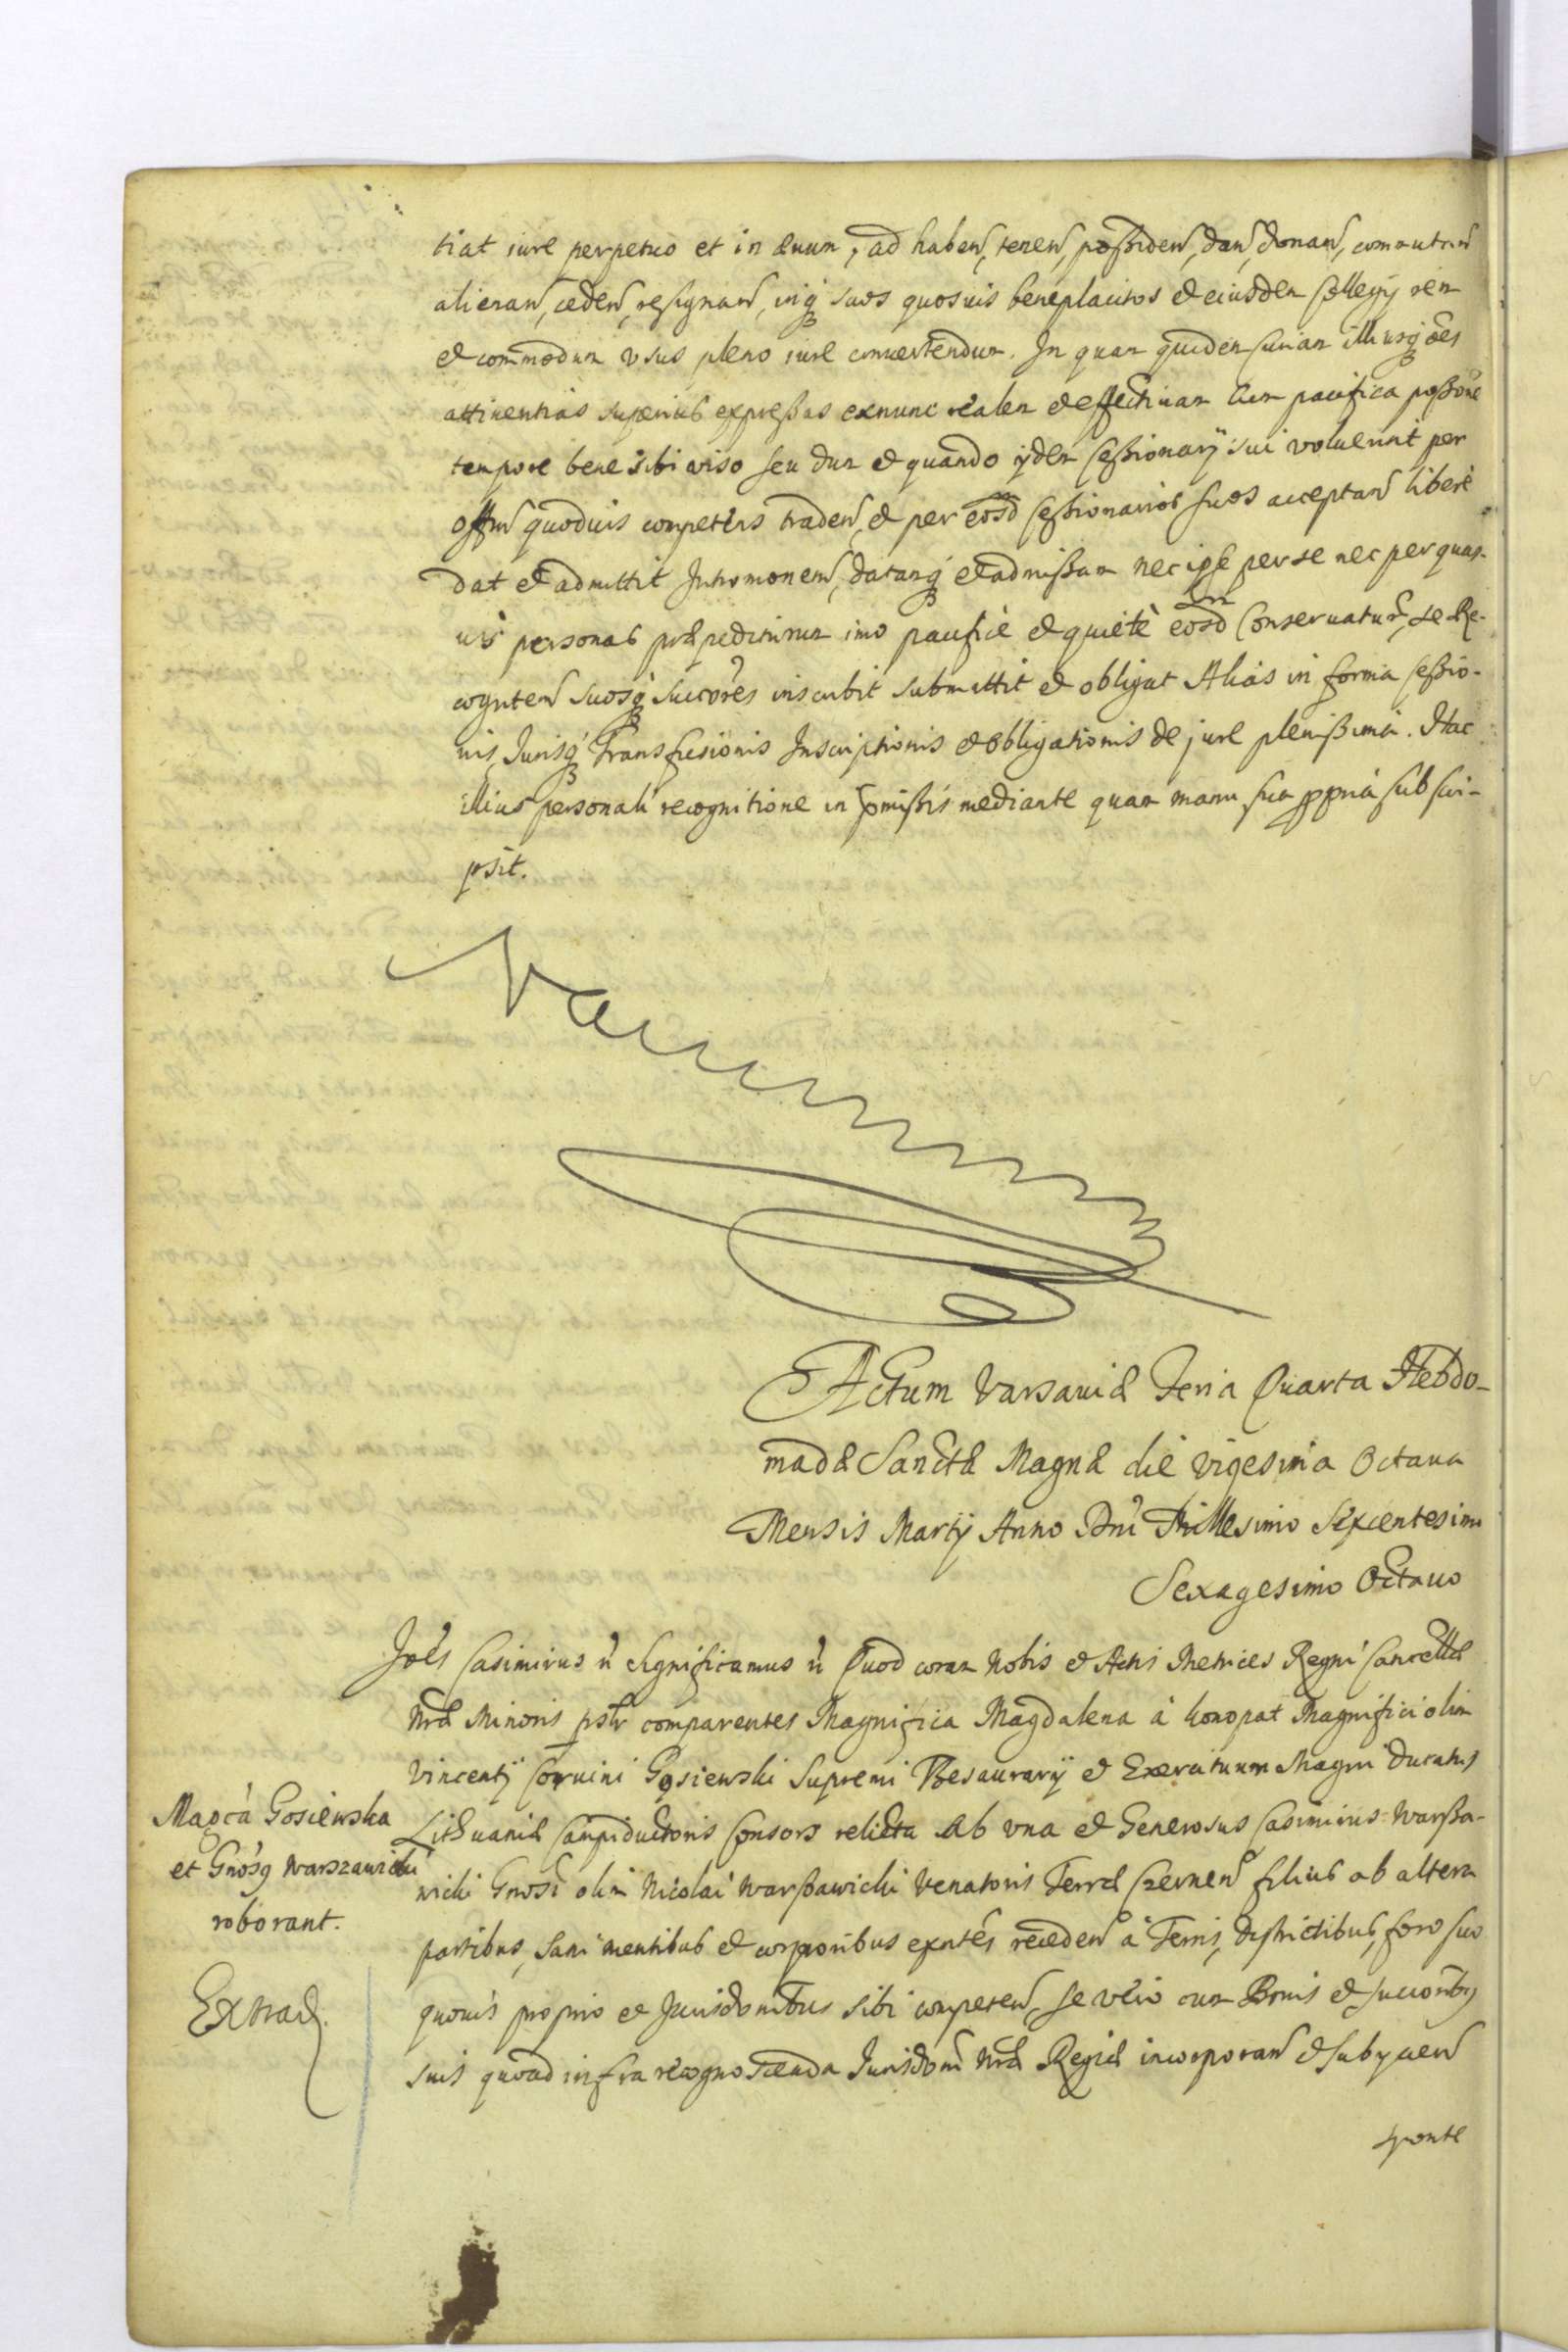 tiat iure perpetuo et in ævum, ad haben, tenen, possiden, dan, donan, comutan
alienan, ceden, resignan, inq suos quosvis beneplacitos et eiusdem Collegij rem
et commodum usus pleno iure convertendum. In quam quidem Curiam illiusq oēs
attinentias superius expressas exnunc realem et effectivam cum pacifica possone
tempore bene sibi viso seu dum et quando ijdem Cessionarij sui voluerint per
offm quodvis competens traden, et per eosd Cessionarios suos acceptan liberè
dat et admittit Intromonem, datamq et admissam nec ipse per se nec per quas-
vis personas præpediturum imo pacificè et quietè eosd Conservaturū, se Re-
cognten suosq succores inscribit submittit et obligat Alias in forma Cessio-
nis, Jurisq Transfusionis Inscriptionis et obligationis de jure plenissima. Hac
illius personali recognitione in pmissis mediante quam manu sua ppria subscri-
psit.
Actum Varsaviæ Feria Quarta Hebdo-
madæ Sanctæ Magnæ die Vigesima Octava
Mensis Martij Anno Dni Millesimo Sexcentesimo
Sexagesimo Octavo
Joēs Casimirus ñ Significamus ñ Quod coram Nobis et Actis Metrices Regni Cancellæ
Nræ Minoris pslr comparentes Magnifica Magdalena à Konopat Magnifici olim
Vincentij Corvini Gosiewski Supremi Thesaurarij et Exercituum Magni Ducatus
Lithuaniæ Campiductoris Consors relicta ab una et Generosus Casimirus Warssa-
wicki Gnosi olim Nicolai Warssawicki Venatoris Terræ Czernen filius ab altera
partibus, sani mentibus et corporibus exntes receden à Terris, districtibus, foro suo
quovis proprio et Jurisdonibus sibi competen, se vero cum Bonis et succoribq
suis quoad infra recognoscenda Jurisdoni Nræ Regiæ incorporan et subijcien
sponte
Magca Gosiewska
et Gnosq Warszawicki
roborant.
Extrad.